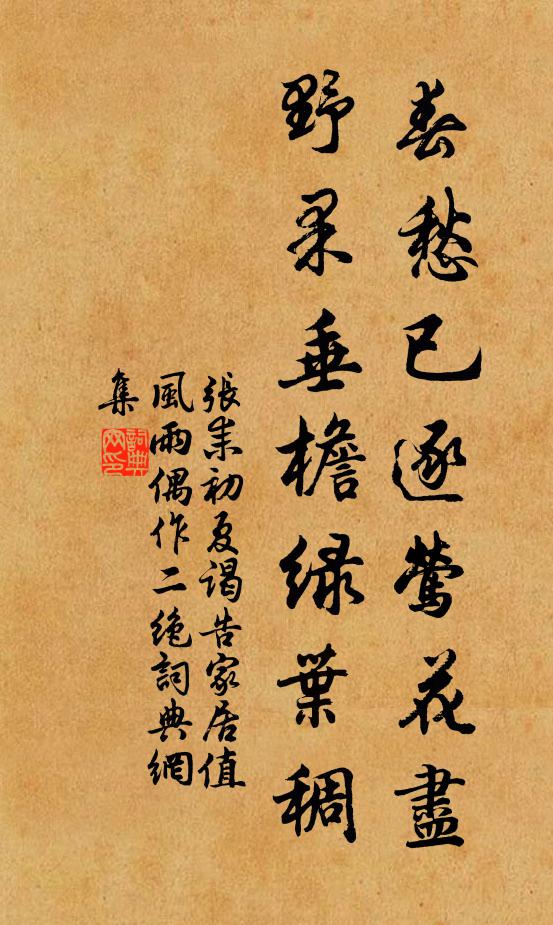 春愁已逐鶯花盡
野果垂檐绿葉稠
張耒初夏謁告家居值
風雨偶作二绝詞典網
集
詞典
网印